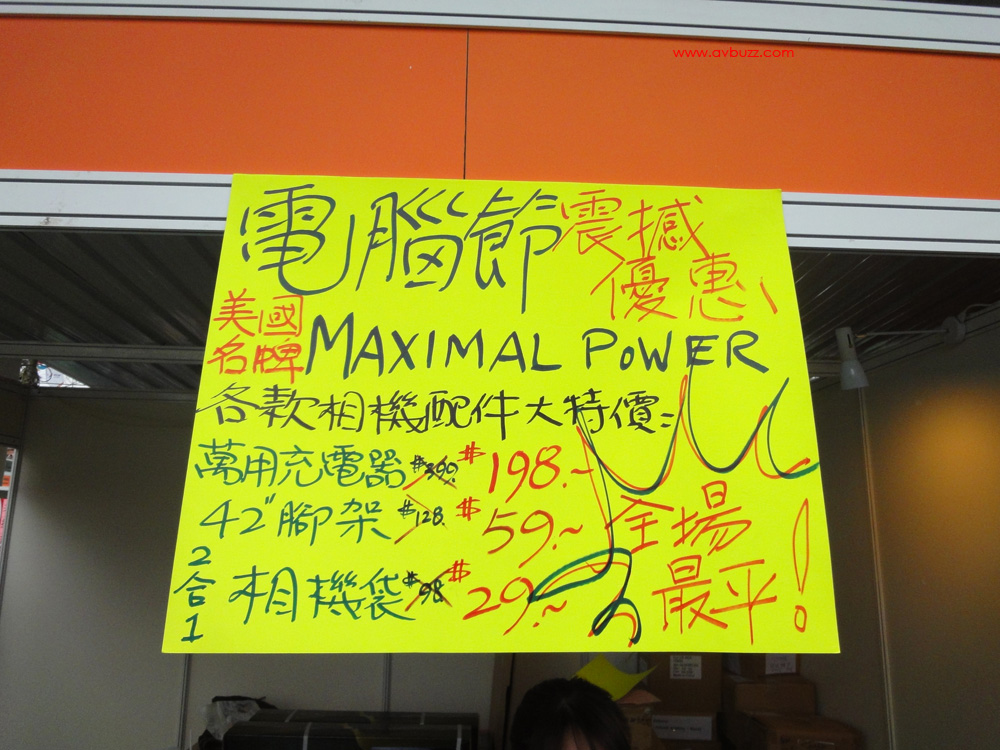 www.avbuzz.com
電腦節震撼
優惠!
美國
名牌
MAXIMAL POWER
各款相機配件大特價:
萬用充電器 $390. $198.~
42"腳架 $128. $59.~
2合1 相機袋 $98 $29.~
全場
最平!